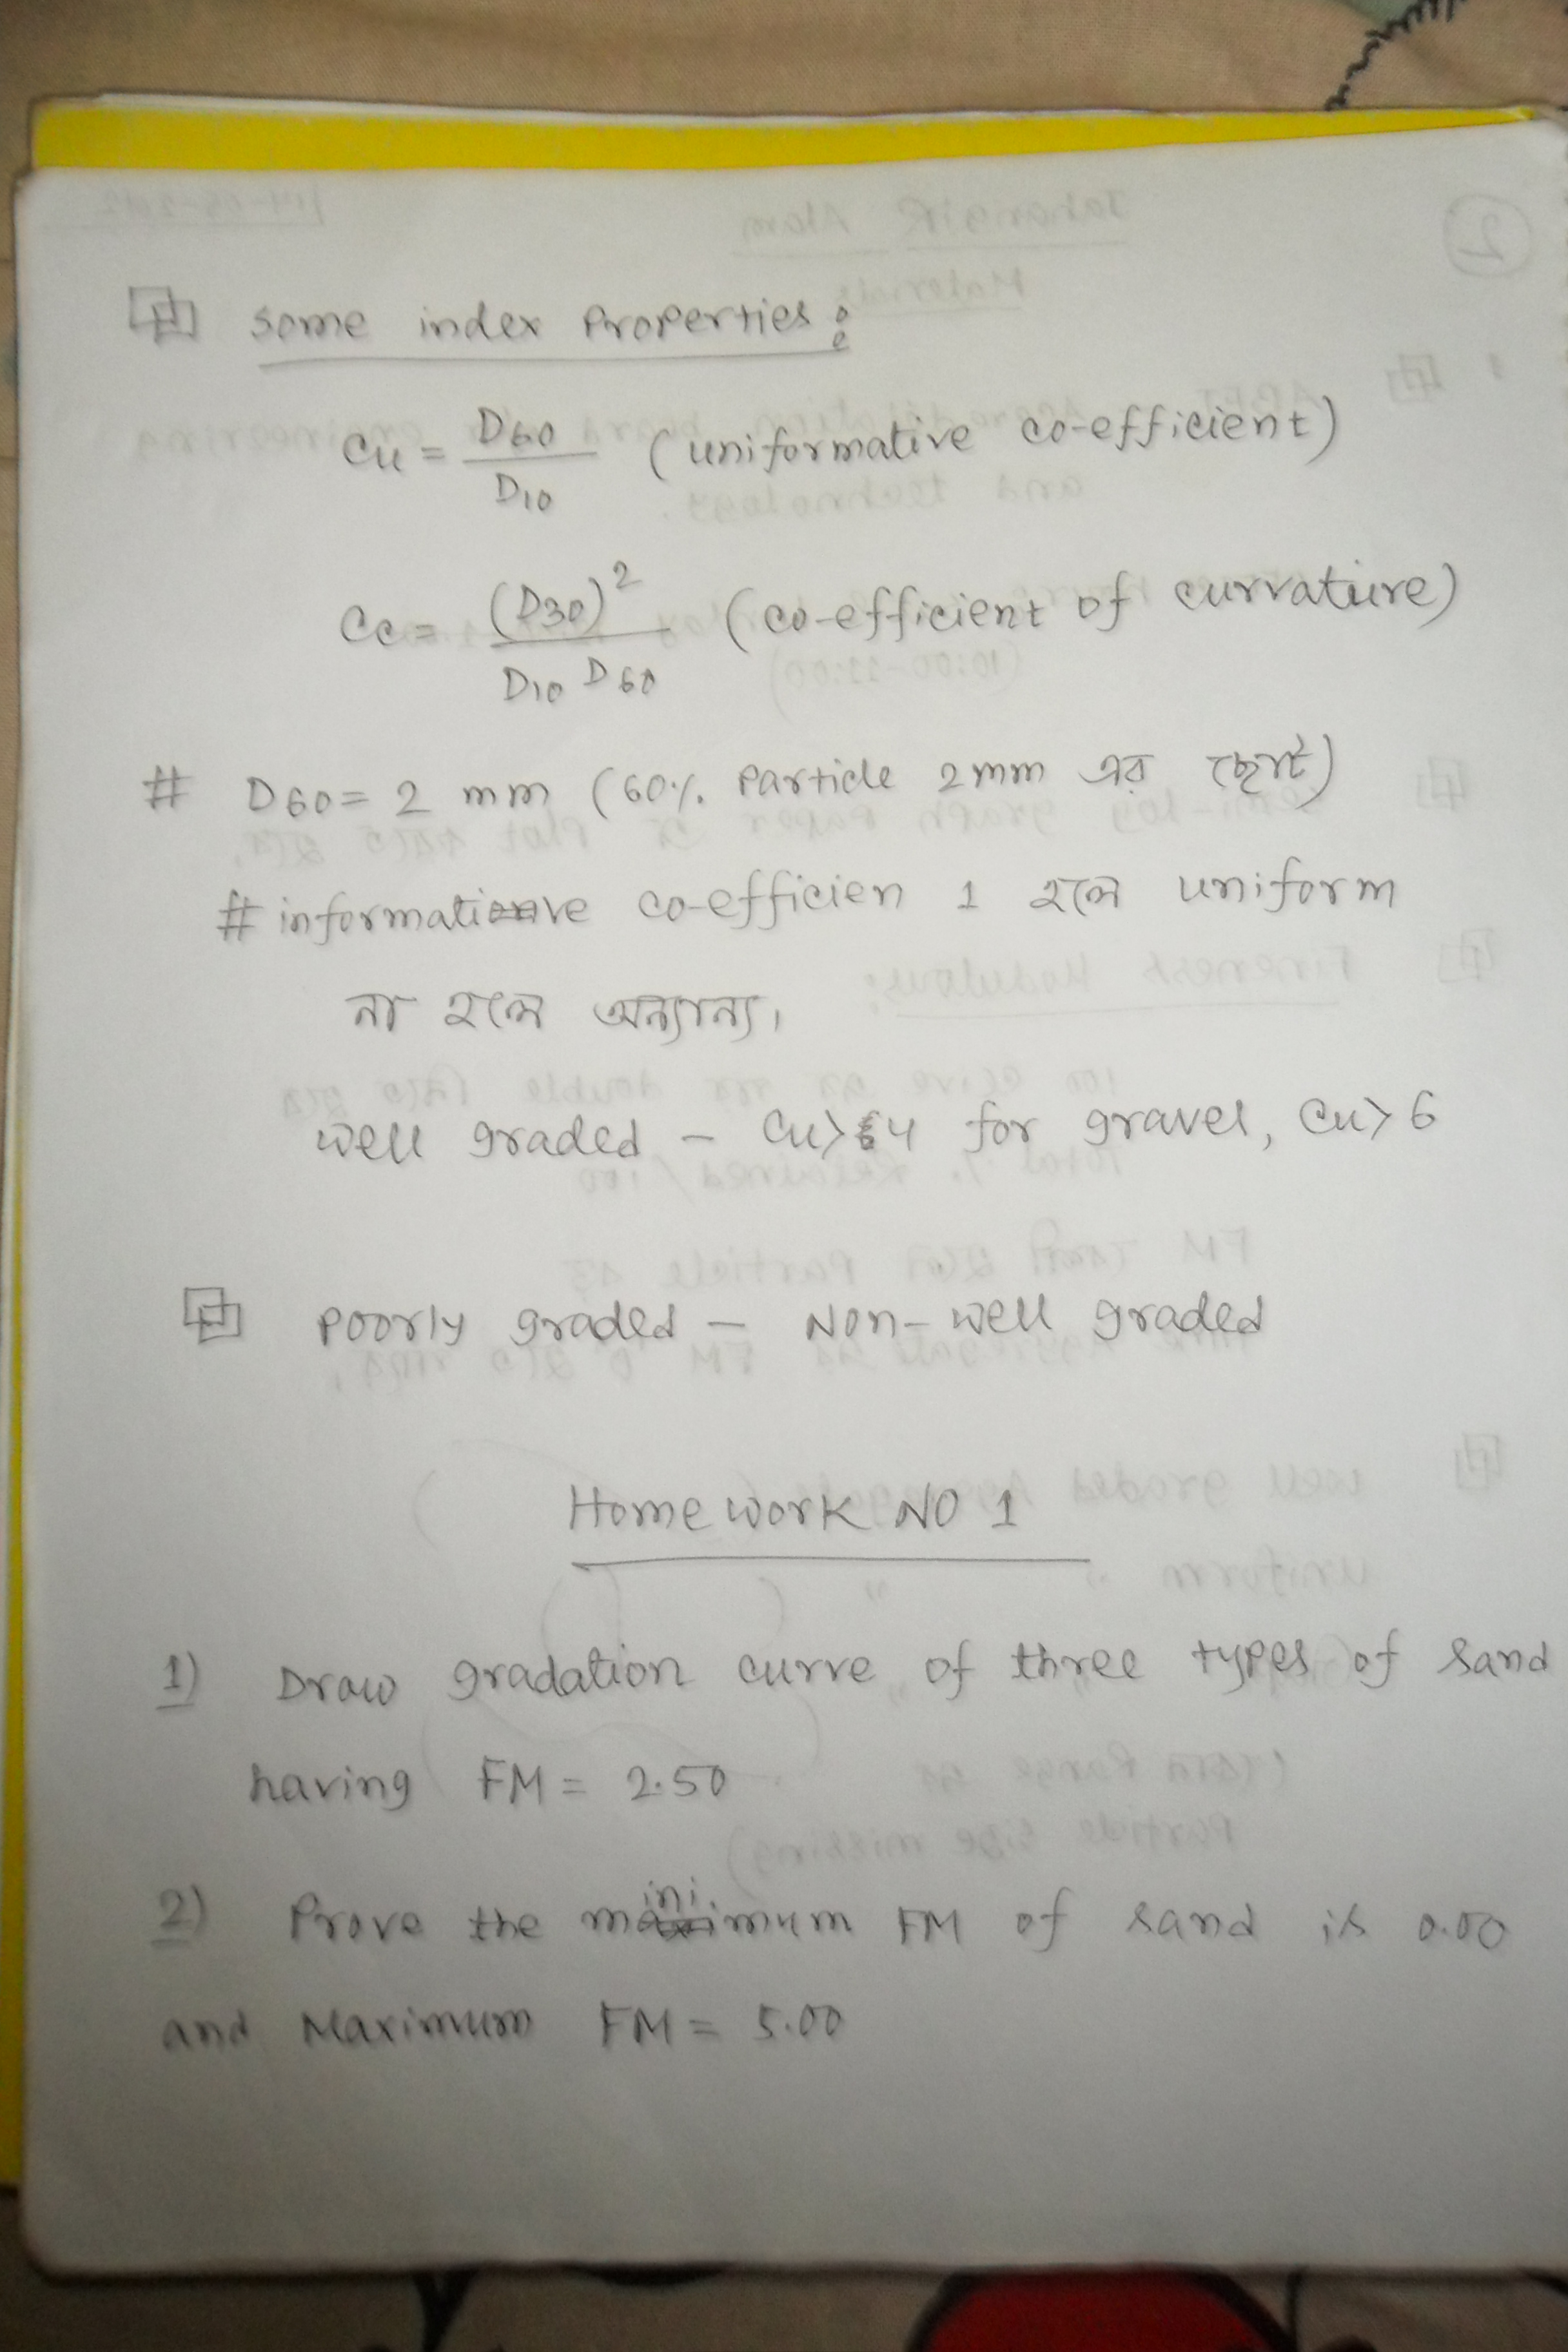 some index Properties:
Cu = D60/D10 (uniformative co-efficient)
Cc = (D30)²/D10 D60 (co-efficient of curvature)
# D60 = 2 mm (60% Particle 2mm এর ছোট)
# informative co-efficien 1 হলে uniform
না হলে অন্যান্য।
well graded - Cu>4 for gravel, Cu>6
Poorly graded - Non-well graded
Home work NO 1
1) Draw gradation curve of three types of sand
having FM = 2.50
2) Prove the minimum FM of sand is 0.00
and Maximum FM = 5.00